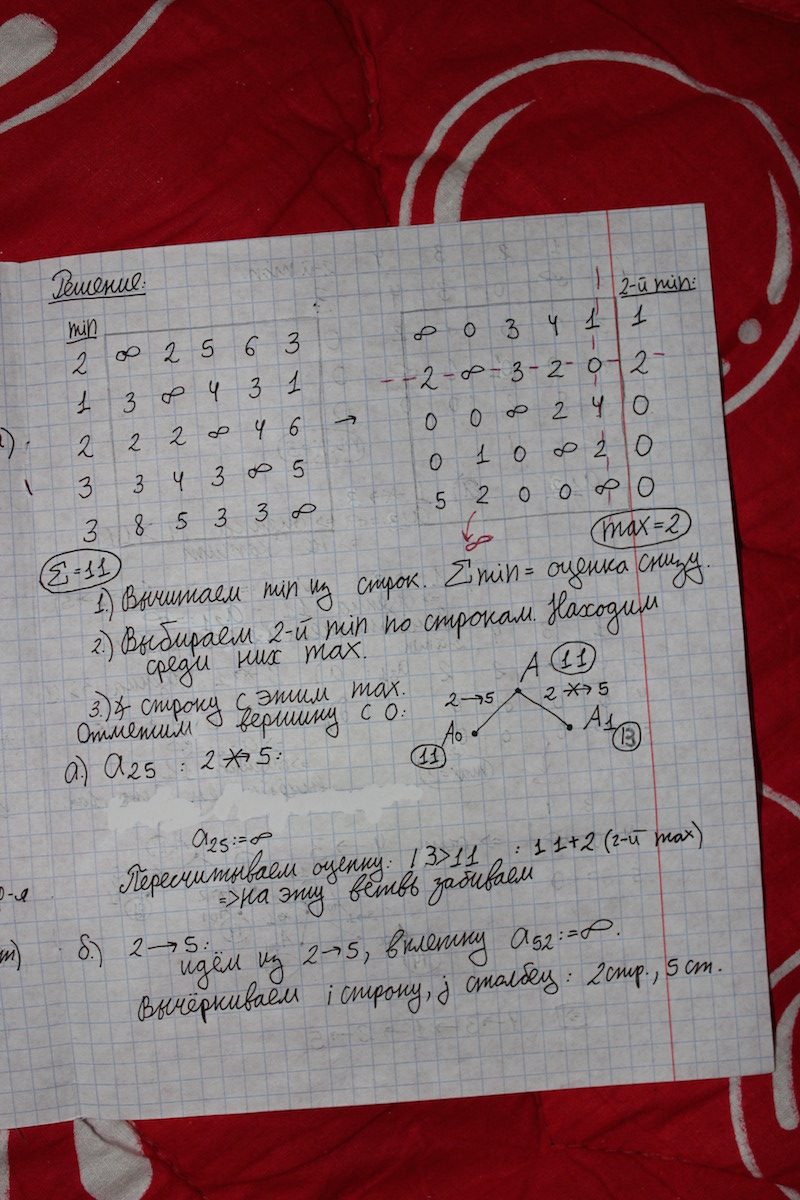 Решение:
min
2-й min:
2 ∞ 2 5 6 3
1 3 ∞ 4 3 1
2 2 2 ∞ 4 6
3 3 4 3 ∞ 5
3 8 5 3 3 ∞
→
∞ 0 3 4 1 1
2 ∞ 3 2 0 2
0 0 ∞ 2 4 0
0 1 0 ∞ 2 0
5 2 0 0 ∞ 0
∞
max=2
Σ=11
1.) Вычитаем min из строк. Σmin = оценка снизу.
2.) Выбираем 2-й min по строкам. Находим
среди них max.
3.) строку с этим max.
Отметим вершину с 0:
A 11
2→5 2↛5
A₀ A₁
11 13
а.) a₂₅ : 2↛5:
a₂₅:=∞
Пересчитываем оценку: 13>11 : 11+2 (2-й max)
=> на эту ветвь забиваем
б.) 2→5:
идём из 2→5, в клетку a₅₂:=∞.
Вычёркиваем i строку, j столбец: 2стр., 5 ст.
0-я